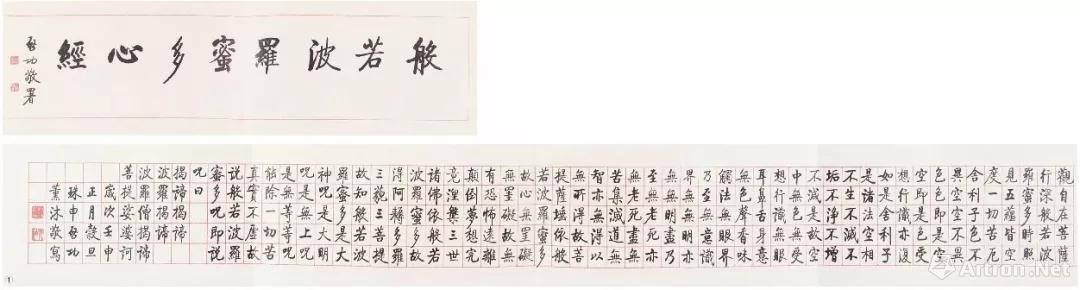 般若波羅蜜多心經
啓功敬署
觀自在菩薩
行深般若波
羅蜜多時照
見五蘊皆空
度一切苦厄
舍利子色不
異空空不異
色色即是空
空即是色受
想行識亦復
如是舍利子
是諸法空相
不生不滅不
垢不淨不增
不減是故空
中無色無受
想行識無眼
耳鼻舌身意
無色聲香味
觸法無眼界
乃至無意識
界無無明亦
無無明盡乃
至無老死亦
無老死盡無
苦集滅道無
智亦無得以
無所得故菩
提薩埵依般
若波羅蜜多
故心無罣礙
無罣礙故無
有恐怖遠離
顛倒夢想究
竟涅槃三世
諸佛依般若
波羅蜜多故
得阿耨多羅
三藐三菩提
故知般若波
羅蜜多是大
神呪是大明
呪是無上呪
是無等等呪
能除一切苦
真實不虛故
說般若波羅
蜜多呪即說
呪曰
揭諦揭諦
波羅揭諦
波羅僧揭諦
菩提娑婆訶
歲次壬申
正月穀旦
珠申啓功
薰沐敬寫
1
Artron.Net